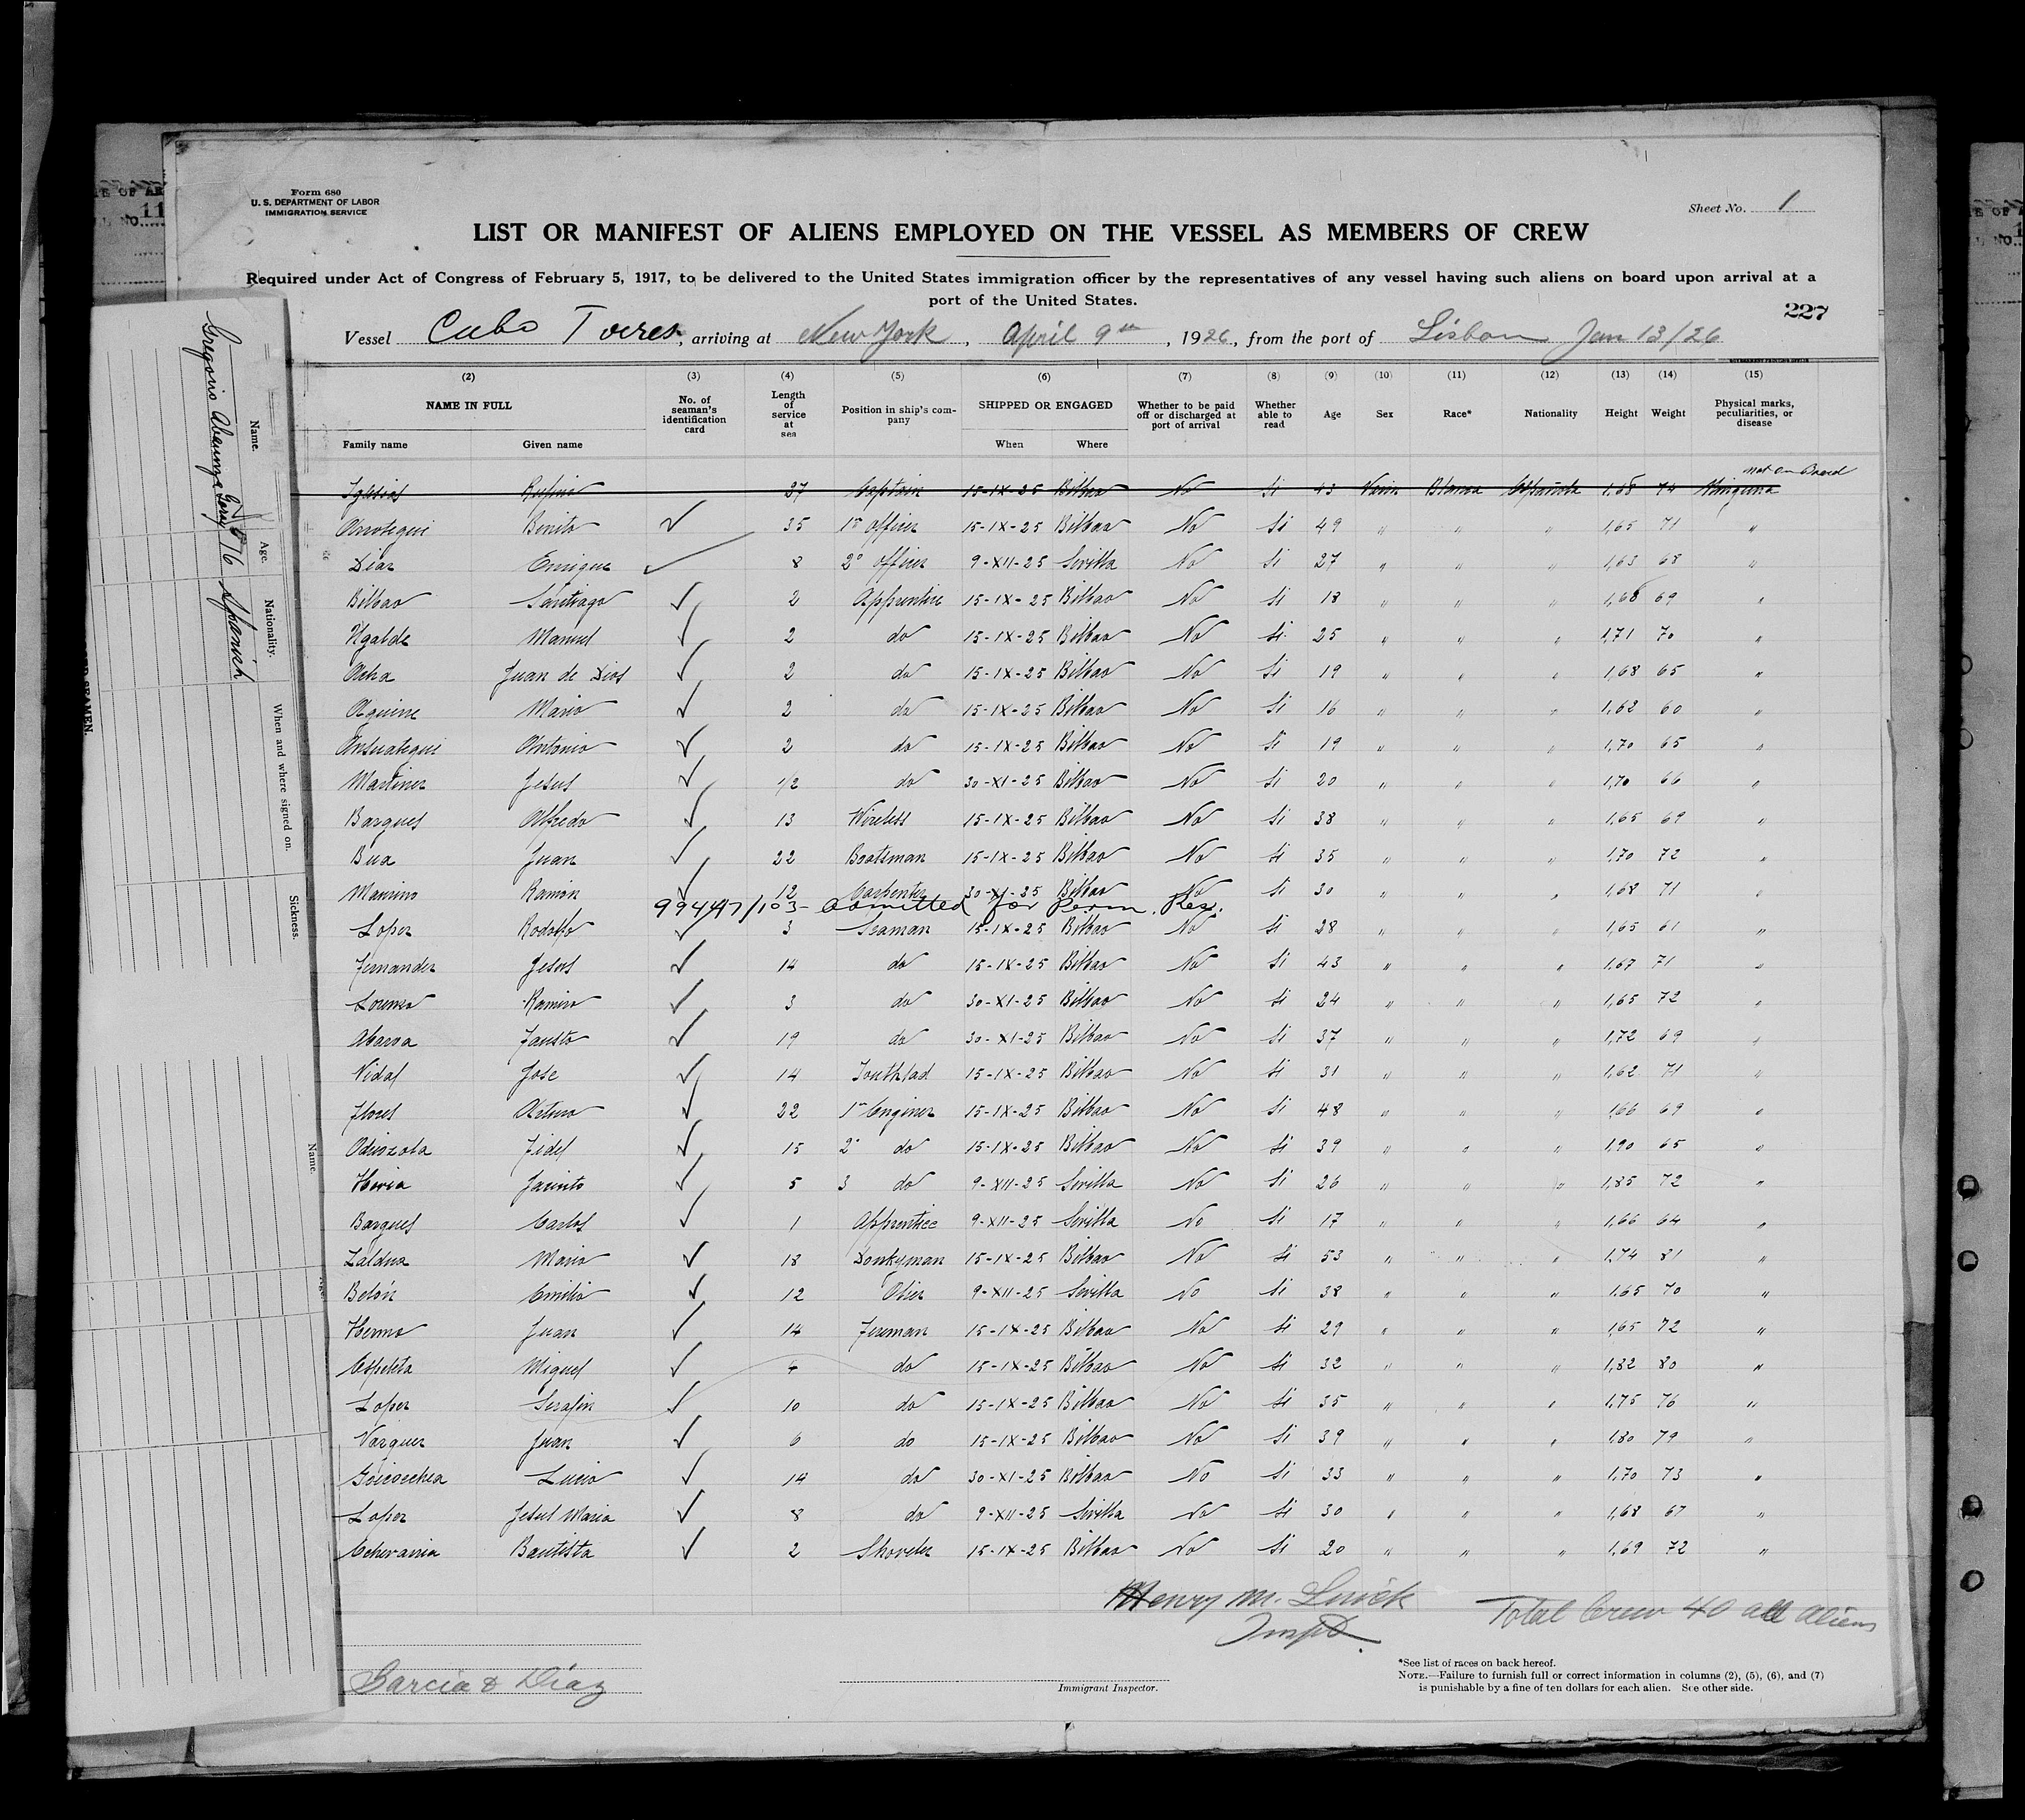 Form 680
U. S. DEPARTMENT OF LABOR
IMMIGRATION SERVICE
Sheet No. 1
LIST OR MANIFEST OF ALIENS EMPLOYED ON THE VESSEL AS MEMBERS OF CREW
Required under Act of Congress of February 5, 1917, to be delivered to the United States immigration officer by the representatives of any vessel having such aliens on board upon arrival at a
port of the United States.
227
Vessel Cabo Torres, arriving at New York, April 9th, 1926, from the port of Lisbon Jan 13/26
(2) (3) (4) (5) (6) (7) (8) (9) (10) (11) (12) (13) (14) (15)
NAME IN FULL No. of seaman's identification card Length of service at sea Position in ship's company SHIPPED OR ENGAGED Whether to be paid off or discharged at port of arrival Whether able to read Age Sex Race* Nationality Height Weight Physical marks, peculiarities, or disease
Family name Given name When Where
not on Board
Iglesias Rufino 27 Captain 15-IX-25 Bilbao No Si 43 Blanca Española 1,68 74 Ninguna
Benito 35 1er officer 15-IX-25 Bilbao No Si 49 " " " 1,65 71 "
Diaz Enrique 8 2o officer 9-XII-25 Sevilla No Si 27 " " " 1,63 68 "
Bilbao Santiago 2 Apprentice 15-IX-25 Bilbao No Si 18 " " " 1,68 69 "
Ugalde Manuel 2 do 15-IX-25 Bilbao No Si 25 " " " 1,71 70 "
Acha Juan de Dios 2 do 15-IX-25 Bilbao No Si 19 " " " 1,68 65 "
Aguirre Mario 2 do 15-IX-25 Bilbao No Si 16 " " " 1,62 60 "
Ansuategui Antonio 2 do 15-IX-25 Bilbao No Si 19 " " " 1,70 65 "
Martinez Jesus 1/2 do 30-XI-25 Bilbao No Si 20 " " " 1,70 66 "
Barques Alfredo 13 Wireless 15-IX-25 Bilbao No Si 38 " " " 1,65 69 "
Bua Juan 22 Boatsman 15-IX-25 Bilbao No Si 35 " " " 1,70 72 "
Ramón 12 Carpenter 30-XI-25 Bilbao No Si 30 " " " 1,68 71 "
99447/103- Admitted for Perm. Res.
Lopez Rodolfo 3 Seaman 15-IX-25 Bilbao No Si 28 " " " 1,65 61 "
Fernandez Jesus 14 do 15-IX-25 Bilbao No Si 43 " " " 1,67 71 "
Lorenzo Ramiro 3 do 30-XI-25 Bilbao No Si 24 " " " 1,65 72 "
Abaroa Fausto 19 do 30-XI-25 Bilbao No Si 37 " " " 1,72 69 "
Vidal Jose 14 15-IX-25 Bilbao No Si 31 " " " 1,62 71 "
Flores Arturo 22 1er Enginer 15-IX-25 Bilbao No Si 48 " " " 1,66 69 "
Odriozola Fidel 15 2o do 15-IX-25 Bilbao No Si 39 " " " 1,90 65 "
Hevia Jacinto 5 3 do 9-XII-25 Sevilla No Si 26 " " " 1,85 72 "
Barques Carlos 1 Apprentice 9-XII-25 Sevilla No Si 17 " " " 1,66 64 "
Zaldua Mario 18 Donkyman 15-IX-25 Bilbao No Si 53 " " " 1,74 81 "
Belón Emilio 12 Oiler 9-XII-25 Sevilla No Si 38 " " " 1,65 70 "
Hermo Juan 14 Fireman 15-IX-25 Bilbao No Si 29 " " " 1,65 72 "
Espeleta Miguel do 15-IX-25 Bilbao No Si 32 " " " 1,82 80 "
Lopez Serafin 10 do 15-IX-25 Bilbao No Si 35 " " " 1,75 76 "
Vazquez Juan 6 do 15-IX-25 Bilbao No Si 39 " " " 1,80 79 "
Goicoechea Lucio 14 do 30-XI-25 Bilbao No Si 33 " " " 1,70 73 "
Lopez Jesus Maria 8 do 9-XII-25 Sevilla No Si 30 " " " 1,68 67 "
Echevarria Bautista 2 Shoveler 15-IX-25 Bilbao No Si 20 " " " 1,69 72 "
Henry M. Insp
Total Crew 40 all aliens
Garcia & Diaz
Immigrant Inspector.
*See list of races on back hereof.
NOTE.—Failure to furnish full or correct information in columns (2), (5), (6), and (7)
is punishable by a fine of ten dollars for each alien. See other side.
Name. Age. Nationality. When and where signed on. Sickness.
Gregorio 16 Spanish
Name.